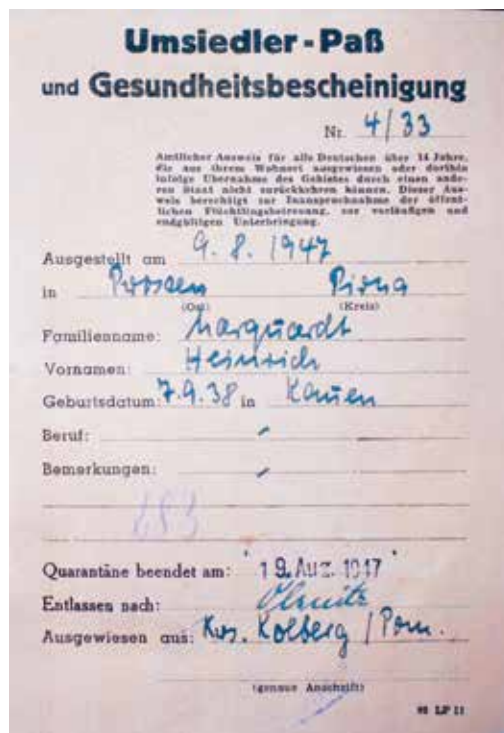 Umsiedler-Paß
und Gesundheitsbescheinigung
Nr. 4/33
Amtlicher Ausweis für alle Deutschen über 14 Jahre,
die aus ihrem Wohnort ausgewiesen oder dorthin
infolge Übernahme des Gebietes durch einen ande-
ren Staat nicht zurückkehren können. Dieser Aus-
weis berechtigt zur Inanspruchnahme der öffent-
lichen Flüchtlingsbetreuung, zur vorläufigen und
endgültigen Unterbringung.
Ausgestellt am 9. 8. 1947
in Prossen Pirna
(Ort) (Kreis)
Familienname: Marquardt
Vornamen: Heinrich
Geburtsdatum: 7.9.38 in Kauen
Beruf:
Bemerkungen:
283
Quarantäne beendet am: 19. Aug. 1947
Entlassen nach:
Ausgewiesen aus: Krs. Kolberg / Pom.
(genaue Anschrift)